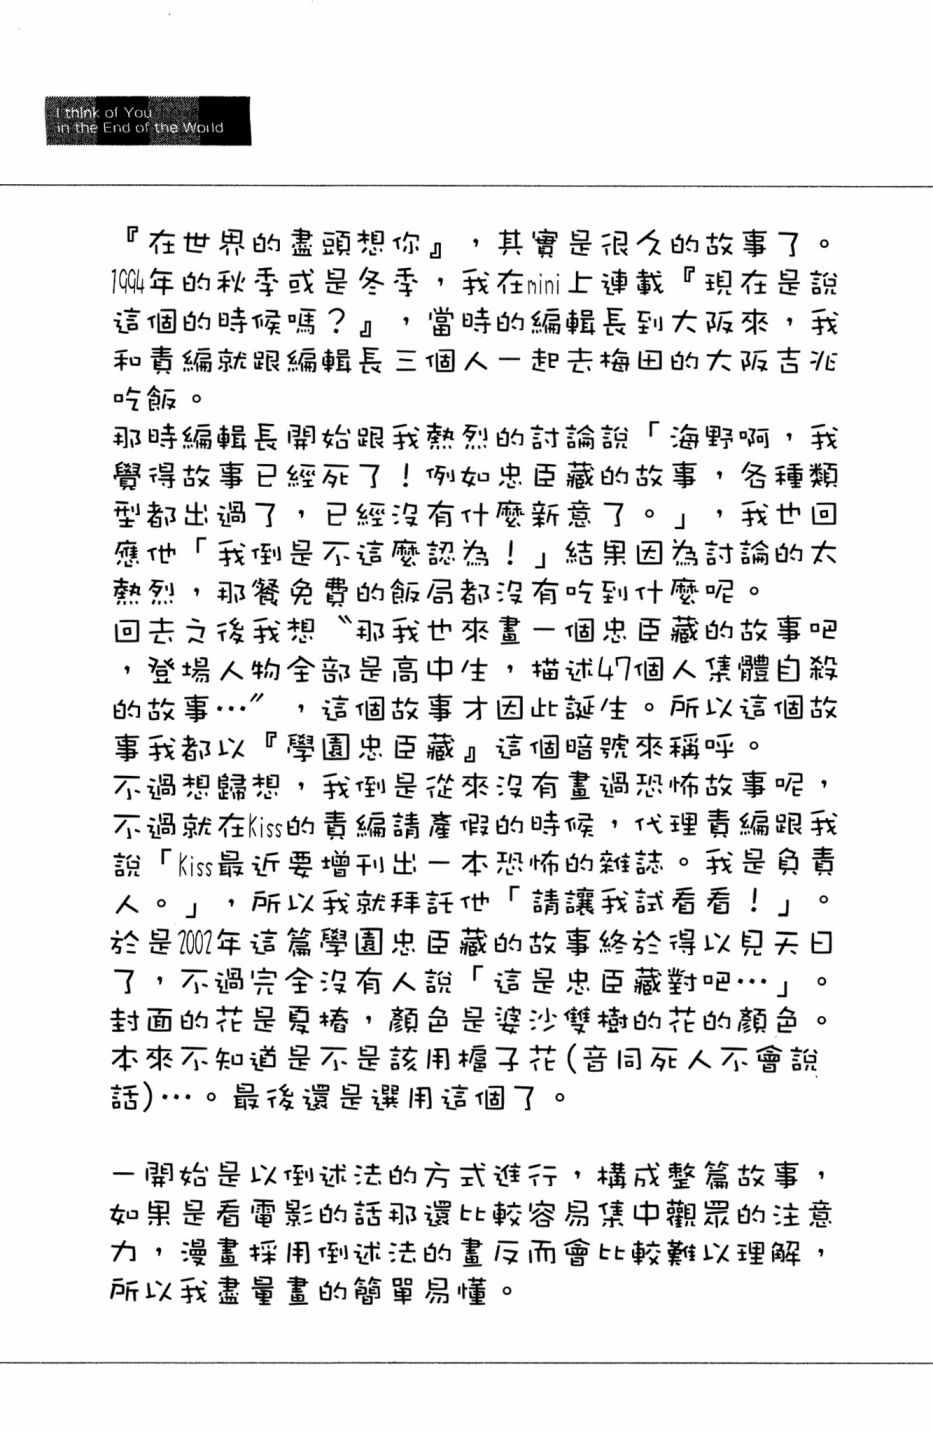 I think of You
in the End of the World
『在世界的盡頭想你』，其實是很久的故事了。
1994年的秋季或是冬季，我在nini上連載『現在是說
這個的時候嗎？』，當時的編輯長到大阪來，我
和責編就跟編輯長三個人一起去梅田的大阪吉兆
吃飯。
那時編輯長開始跟我熱烈的討論說「海野啊，我
覺得故事已經死了！例如忠臣藏的故事，各種類
型都出過了，已經沒有什麼新意了。」，我也回
應他「我倒是不這麼認為！」結果因為討論的太
熱烈，那餐免費的飯局都沒有吃到什麼呢。
回去之後我想〝那我也來畫一個忠臣藏的故事吧
，登場人物全部是高中生，描述47個人集體自殺
的故事…〞，這個故事才因此誕生。所以這個故
事我都以『學園忠臣藏』這個暗號來稱呼。
不過想歸想，我倒是從來沒有畫過恐怖故事呢，
不過就在Kiss的責編請產假的時候，代理責編跟我
說「Kiss最近要增刊出一本恐怖的雜誌。我是負責
人。」，所以我就拜託他「請讓我試看看！」。
於是2002年這篇學園忠臣藏的故事終於得以見天日
了，不過完全沒有人說「這是忠臣藏對吧…」。
封面的花是夏椿，顏色是婆沙雙樹的花的顏色。
本來不知道是不是該用梔子花(音同死人不會說
話)…。最後還是選用這個了。
一開始是以倒述法的方式進行，構成整篇故事，
如果是看電影的話那還比較容易集中觀眾的注意
力，漫畫採用倒述法的畫反而會比較難以理解，
所以我盡量畫的簡單易懂。